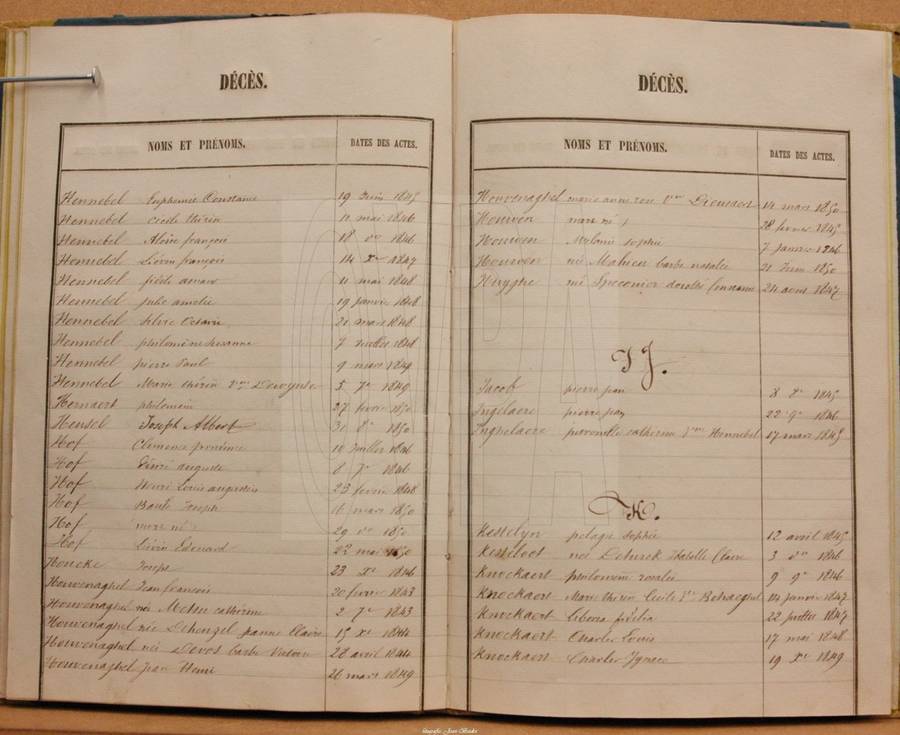 DÉCÈS.
NOMS ET PRÉNOMS. DATES DES ACTES.
Hennebel Euphemie Constance 19 Juin 1845
Hennebel Cecile thérèse 11 mai 1846
Hennebel Aloïse françois 18 do 1846
Hennebel Liévin françois 14 Xre 1847
Hennebel fidèle amand 11 mai 1848
Hennebel julie amelie 19 janvier 1848
Hennebel Silvie Octavie 21 mars 1848
Hennebel philomène suzanne 7 1848
Hennebel pierre Paul 9 mars 1849
Hennebel Marie thérèse Vve 5 7re 1849
Hernaert philomène 27 fevrier 1850
Hensel Joseph Albert 31 8e 1850
Hof Clemence 10 Juillet 1846
Hof Henri auguste 8 7e 1846
Hof Henri Louis augustin 23 fevrier 1848
Hof Baule Joseph 16 mars 1850
Hof mort né 29 do 1850
Hof Liévin Edouard 22 mai 1850
Honcke Joseph 23 Xe 1846
Houvenaghel Jean francois 20 fevrier 1843
Houvenaghel née catherine 2 7re 1843
Houvenaghel née Dehenzel jeanne Claire 15 Xe 1844
Houvenaghel née Devos barbe Victoire 28 avril 1844
Houvenaghel Jean Henri 26 mars 1849
DÉCÈS.
NOMS ET PRÉNOMS. DATES DES ACTES.
Houvenaghel marie anne rose Vve 14 mars 1850
Houven mort né 28 fevrier 1845
Houven Melanie sophie 7 Janvier 1846
Houven née Mahieu barbe natalie 21 Juin 1850
Huyghe née Constance 24 aout 1847
IJ.
Jacob pierre jean 8 8e 1845
Ingelaere pierre jean 22 9e 1846
Inghelaere petronille catherine Vve Hennebel 17 mars 1849
K.
Kestelyn pelagie sophie 12 avril 1845
Kesteloot née Isabelle Claire 3 do 1846
Knockaert philomène rosalie 9 9e 1846
Knockaert Marie thérèse Cecile Ve 14 janvier 1847
Knockaert Liberia 22 juillet 1847
Knockaert Charles Louis 17 mai 1848
Knockaert Charles Ignace 19 Xe 1849